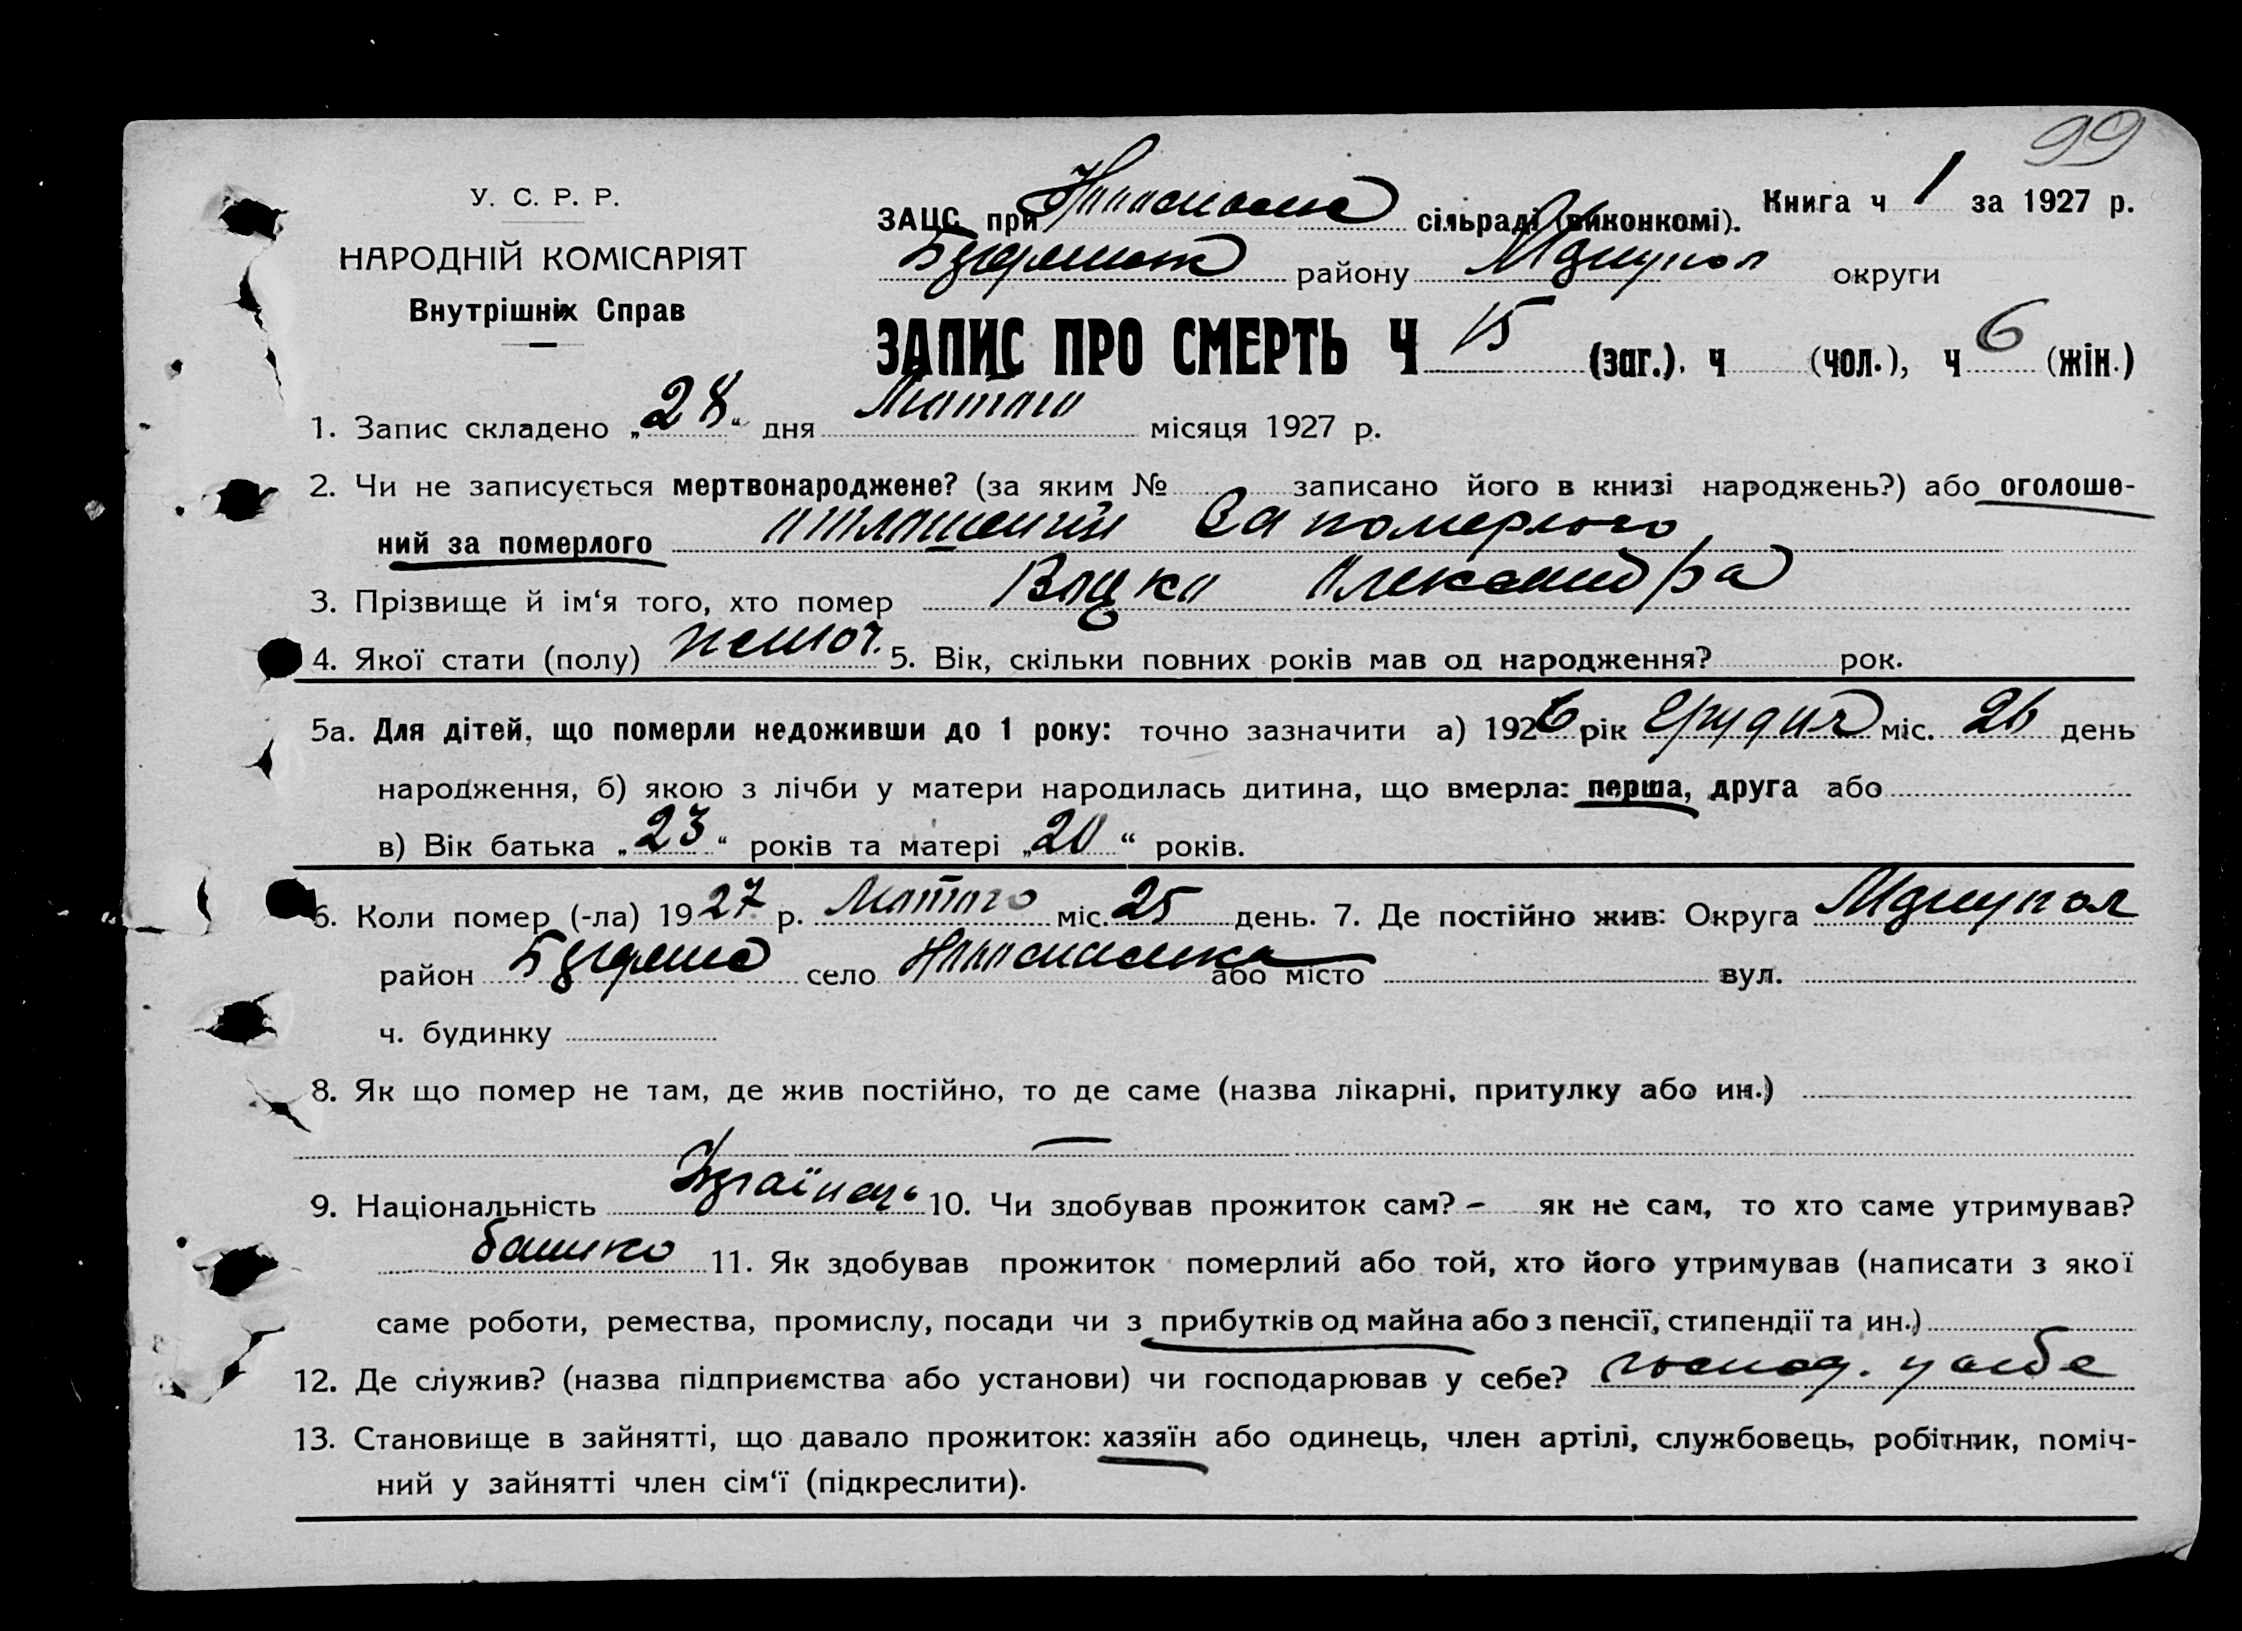 99
У. С. Р. Р.
НАРОДНІЙ КОМІСАРІЯТ
Внутрішніх Справ
ЗАЦС при сільраді (виконкомі).
Книга ч 1 за 1927 р.
району округи
ЗАПИС ПРО СМЕРТЬ Ч 15 (заг.). ч (чол.), ч 6 (жін.)
1. Запис складено „28“ дня Лютого місяця 1927 р.
2. Чи не записується мертвонароджене? (за яким № записано його в книзі народжень?) або оголоше-
ний за померлого За померлого
3. Прізвище й ім‘я того, хто помер Александра
4. Якої стати (полу) жіноч. 5. Вік, скільки повних років мав од народження? рок.
5а. Для дітей, що померли недоживши до 1 року: точно зазначити а) 1926 рік Грудня міс. 26 день
народження, б) якою з лічби у матери народилась дитина, що вмерла: перша, друга або
в) Вік батька „23“ років та матері „20“ років.
6. Коли помер (-ла) 1927 р. Лютого міс. 25 день. 7. Де постійно жив: Округа
район село або місто вул.
ч. будинку
8. Як що помер не там, де жив постійно, то де саме (назва лікарні, притулку або ин.)
—
9. Національність Українець 10. Чи здобував прожиток сам? - як не сам, то хто саме утримував?
батько 11. Як здобував прожиток померлий або той, хто його утримував (написати з якої
саме роботи, ремества, промислу, посади чи з прибутків од майна або з пенсії, стипендії та ин.)
12. Де служив? (назва підприємства або установи) чи господарював у себе? господ. у себе
13. Становище в зайнятті, що давало прожиток: хазяїн або одинець, член артілі, службовець, робітник, поміч-
ний у зайнятті член сім‘ї (підкреслити).